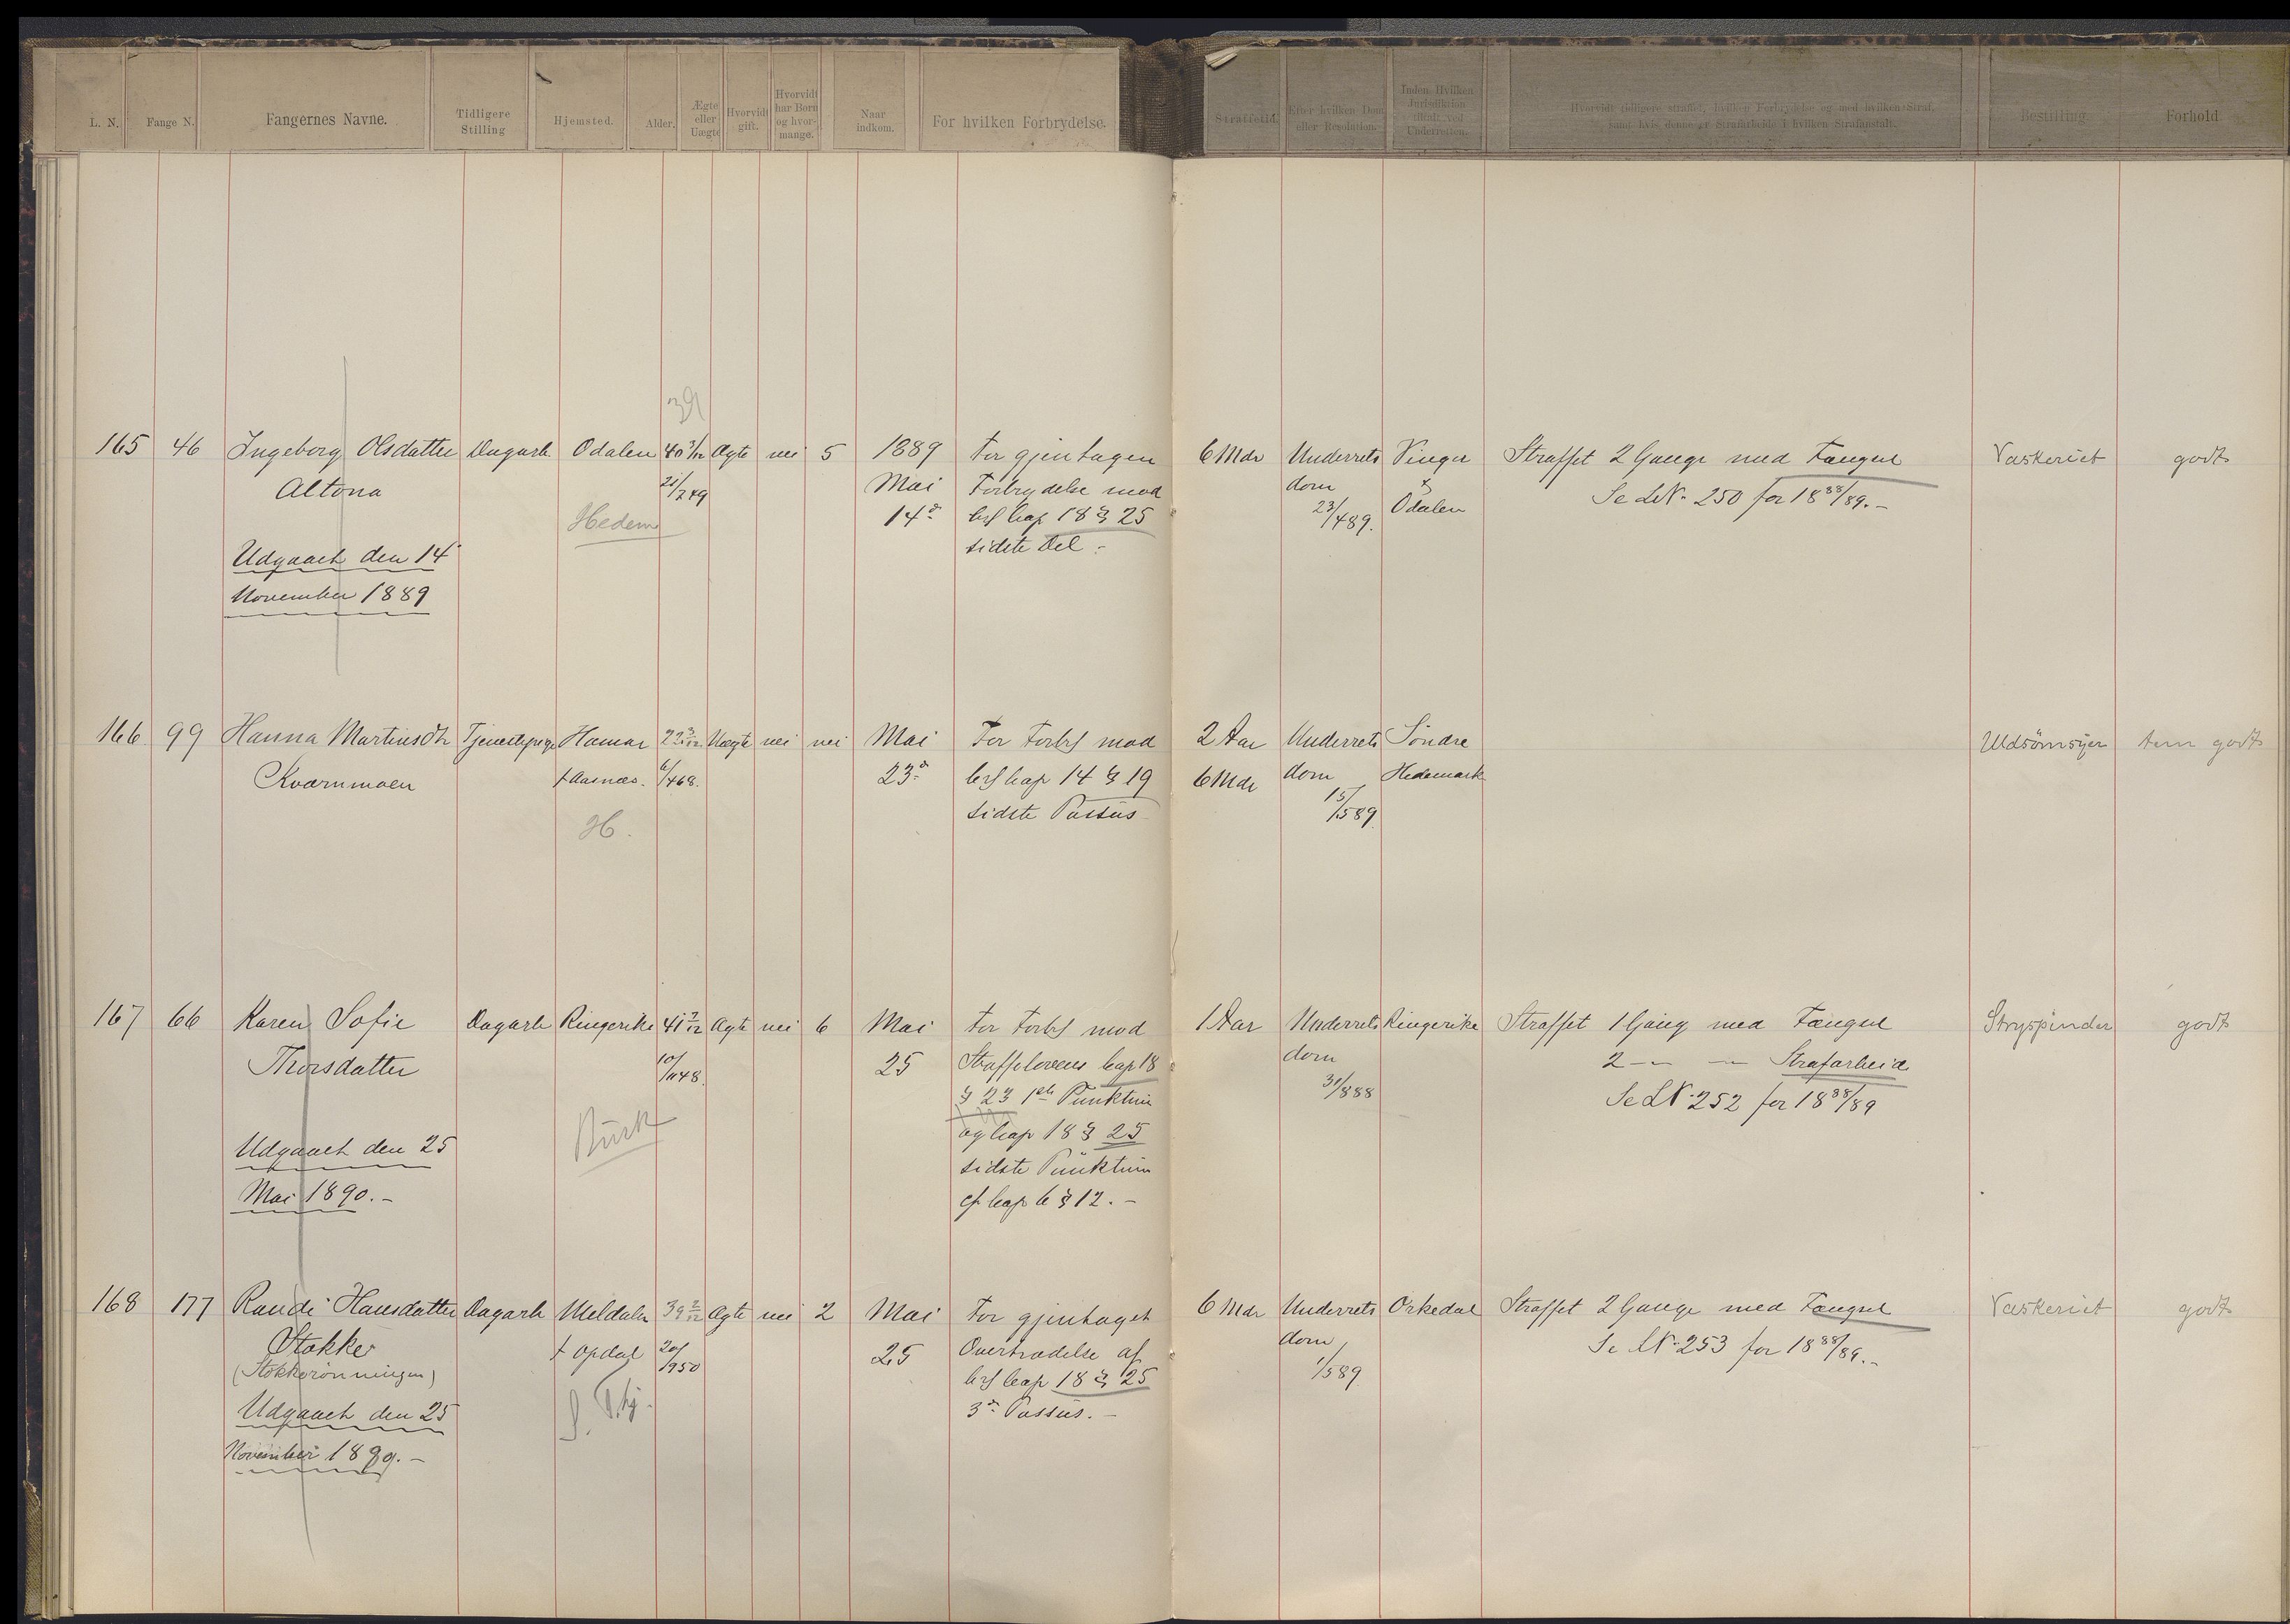 L. N. Fange N. Fangernes Navne. Tidligere Stilling Hjemsted. Alder. Ægte eller Uægte Hvorvidt gift. Hvorvidt har Born og hvormange. Naar indkom. For hvilken Forbrydelse. Straffetid. Efter hvilken Dom eller Resolution. Inden Hvilken Jurisdiktion tiltalt ved Underretten. Hvorvidt tidligere straffet, hvilken Forbrydelse og med hvilken Straf, samt hvis denne er Strafarbeide i hvilken Strafanstalt. Bestilling Forhold
39
165 46 Ingeborg Olsdatter Dagarb Odalen 40 3/12 Ægte nei 5 1889 For gjentagen 6 Mdr Underrets Vinger Straffet 2 Gange med Fængsel Vaskeriet godt
Altona 21/2 49 Mai Forbrydelse mod dom & Se LN. 250 for 18 88/89.-
Hedem 14de krf Cap 18 § 25 23/4 89. Odalen
Udgaaet den 14 sidste Del -
November 1889
166 99 Hanna Martinsdtr Tjenestepige Hamar Uægte nei nei Mai For Forbr mod 2 Aar Underrets Söndre Uldsömsyer tem godt
Kværnmoen f Aasnæs. 6/4 68. 23de Cap 14 § 19 6 Mdr dom Hedemark
H. sidste Passus 15/5 89.
167 66 Karen Sofie Dagarb Ringerike 41 7/12 Ægte nei 6 Mai For Forbr mod 1 Aar Underrets Ringerike Straffet 1 Gang med Fængsel Stryspinder godt
Thorsdatter 10/ 48. 25 Straffelovens Cap 18 dom 2 -- -- Strafarbeid
§ 23 1ste Punktum 31/8 88 Se LN. 252 for 18 88/89
Busk
og Cap 18 § 25
Udgaaet den 25 sidste Punktum
Mai 1890.- cf Cap 6 § 12.-
168 177 Randi Hansdatter Dagarb Meldalen Ægte nei 2 Mai For gjentaget 6 Mdr Underrets Orkedal Straffet 2 Gange med Fængsel Vaskeriet godt
Stokke f Opdal 20/9 50 25 Overtrædelse af dom Se LN. 253 for 18 88/89.-
(Stokkerönningen) Cap 18 § 25 1/5 89
S. Thj. 3die Passus.-
Udgaaet den 25
November 1889.-